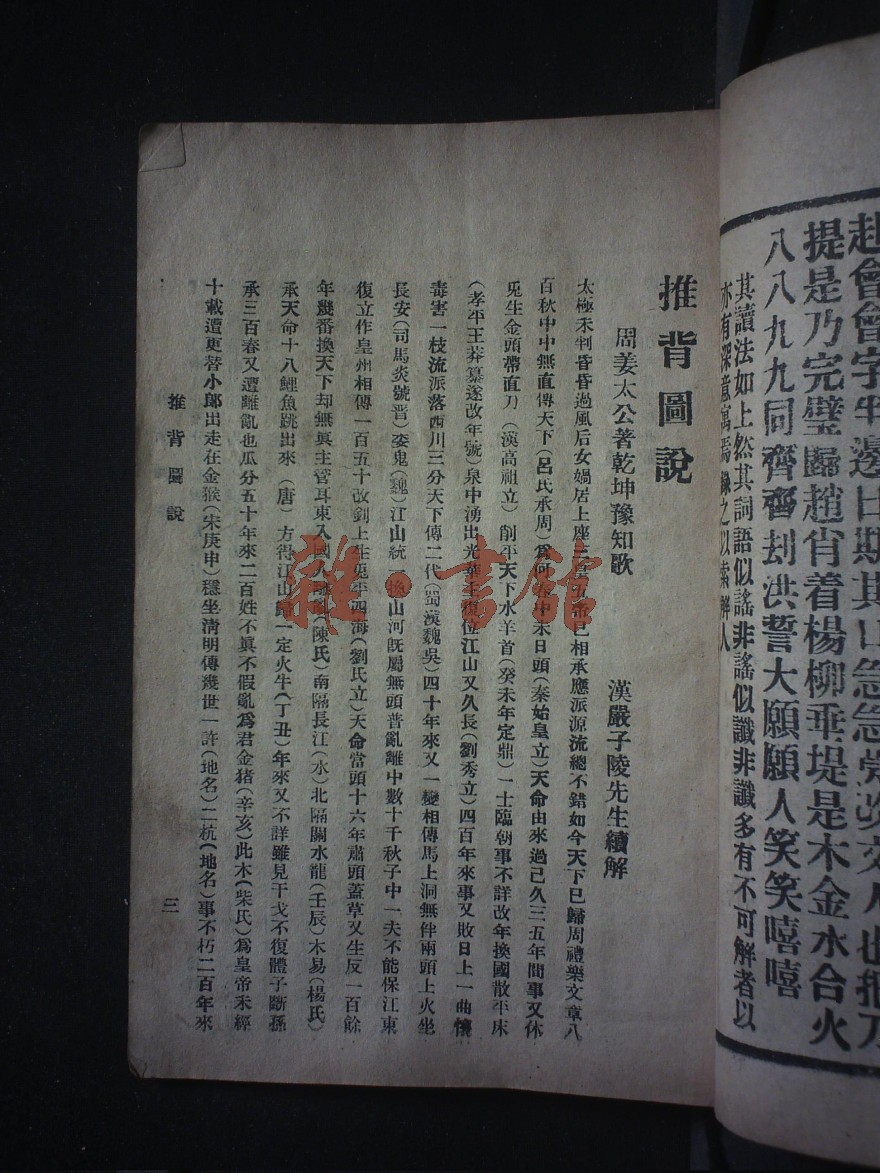 赴會會字半邊日期其口急急
提是乃完璧歸趙肖着楊柳垂堤是木金水合火
八八九九同齊齊刦洪誓大願願人笑笑嘻嘻
其讀法如上然其詞語似謠非謠似讖非讖多有不可解者以
亦有深意寓焉錄之以索解人
推背圖說
周姜太公著乾坤豫知歌 漢嚴子陵先生續解
太極未判昏昏過風后女媧居上座三皇五帝已相承應派源流總不錯如今天下已歸周禮樂文章八
百秋中中無直傳天下(呂氏承周)爲何春中末日頭(秦始皇立)天命由來過已久三五年間事又休
兎生金頭帶直刀(漢高祖立)削平天下水羊首(癸未年定鼎)一士臨朝事不詳改年換國散平床
(孝平王莽纂遂改年號)泉中湧出光華主復位江山又久長(劉秀立)四百年來事又敗日上一曲懷
毒害一枝流派落西川三分天下傳二代(蜀漢魏吳)四十年來又一變相傳馬上洞無伴兩頭上火坐
長安(司馬炎號晋)委鬼(魏)江山統一換山河既屬無頭普亂離中數十千秋子中一夫不能保江東
復立作皇州相傳一百五十改劉上生兎平四海(劉氏立)天命當頭十六年肅頭蓋草又生反一百餘
年幾番換天下却無眞主管耳東入國人離亂(陳氏)南隔長江(水)北隔關水龍(壬辰)木易(楊氏)
承天命十八鯉魚跳出來(唐)方得江山歸一定火牛(丁丑)年來又不詳雖見干戈不復體子斷孫
承三百春又遭離亂也瓜分五十年來二百姓不眞不假亂爲君金猪(辛亥)此木(柴氏)爲皇帝未經
十載遭更替小郎出走在金猴(宋庚申)穩坐淸明傳幾世一許(地名)二杭(地名)事不朽二百年來
推背圖說
三
雜·書館